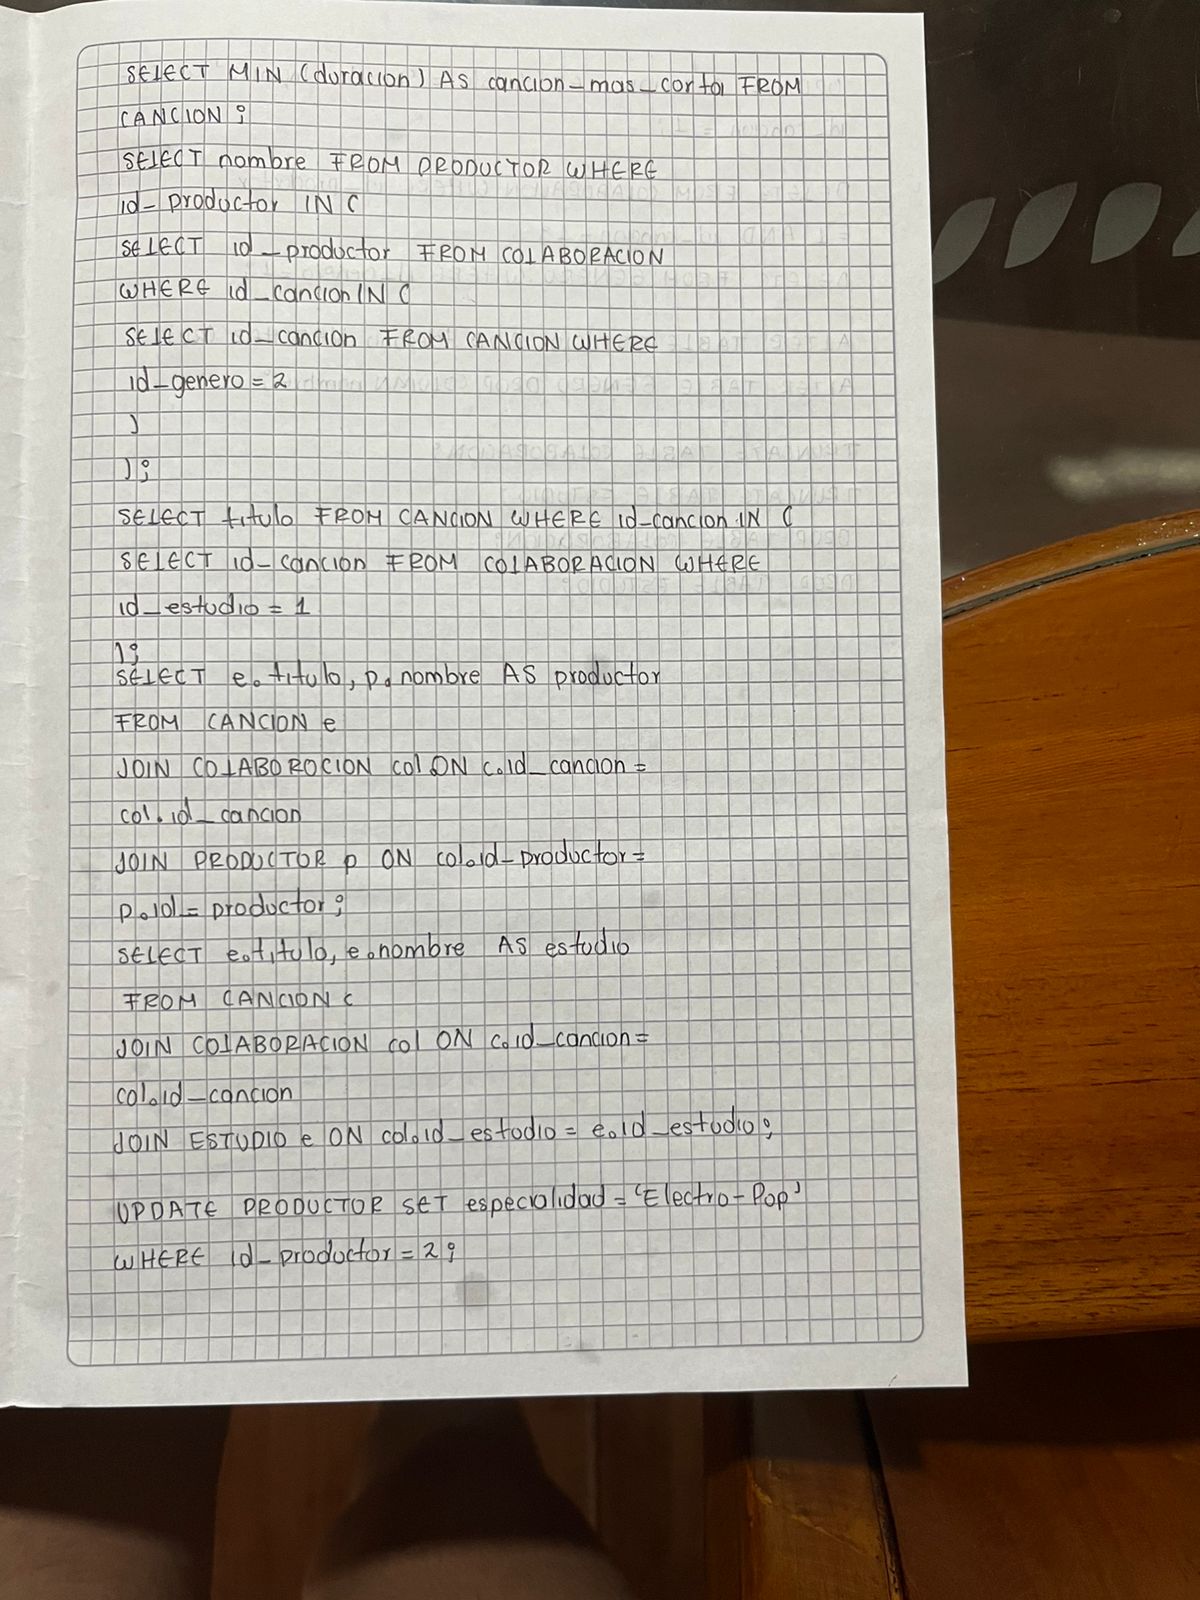 SELECT MIN (duracion) AS cancion_mas_corta FROM
CANCION ;
SELECT nombre FROM PRODUCTOR WHERE
id_productor IN (
SELECT id_productor FROM COLABORACION
WHERE id_cancion IN (
SELECT id_cancion FROM CANCION WHERE
id_genero = 2
)
);
SELECT titulo FROM CANCION WHERE id_cancion IN (
SELECT id_cancion FROM COLABORACION WHERE
id_estudio = 1
);
SELECT e.titulo, p.nombre AS productor
FROM CANCION e
JOIN COLABOROCION col ON c.id_cancion =
col.id_cancion
JOIN PRODUCTOR p ON col.id_productor =
p.id = productor ;
SELECT e.titulo, e.nombre AS estudio
FROM CANCION c
JOIN COLABORACION col ON c.id_cancion =
col.id_cancion
JOIN ESTUDIO e ON col.id_estudio = e.id_estudio ;
UPDATE PRODUCTOR SET especialidad = 'Electro-Pop'
WHERE id_productor = 2 ;